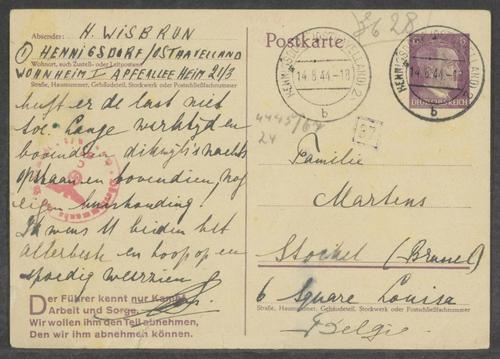 Absender: H. WISBRUN
① HENNIGSDORF/OSTHAVELLAND
Wohnort, auch Zustell- oder Leitpostamt
WOHNHEIM I APFERLLEE HEIM 21/3
Straße, Hausnummer, Gebäudeteil, Stockwerk oder Postschließfachnummer
heeft er de last niet
toe. Lange werktijden
bovendien dikwijls 's nachts
opstaan en bovendien nog
eigen huishouding!
Ik wens U beiden het
allerbeste en hoop op een
spoedig weerzien
Der Führer kennt nur Kampf,
Arbeit und Sorge.
Wir wollen ihm den Teil abnehmen,
Den wir ihm abnehmen können.
Postkarte
HENNIGSDORF (OSTHAVELLAND) 2
14.8.44-18
b
HENNIGSDORF (OSTHAVELLAND) 2
14.8.44-18
b
DEUTSCHES REICH
Familie
Martens
Stockel (Brussel)
6 Square Louisa
Straße, Hausnummer, Gebäudeteil, Stockwerk oder Postschließfachnummer
Belgie